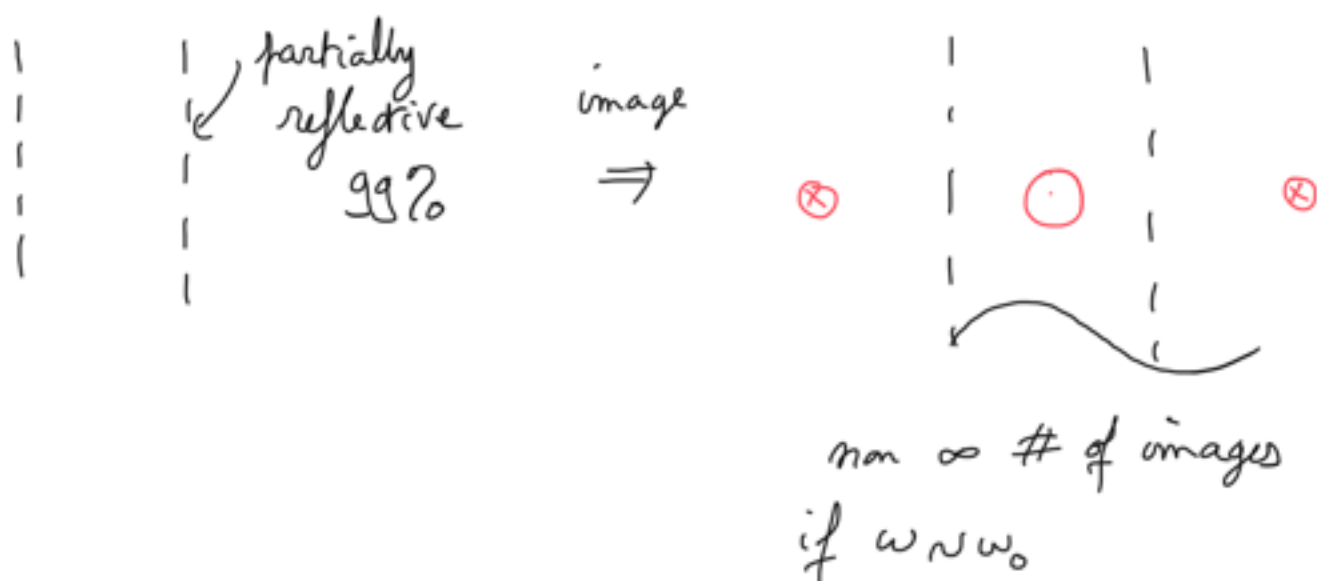 partially
reflective
99%
image
⇒
non ∞ # of images
if ω ~ ω₀